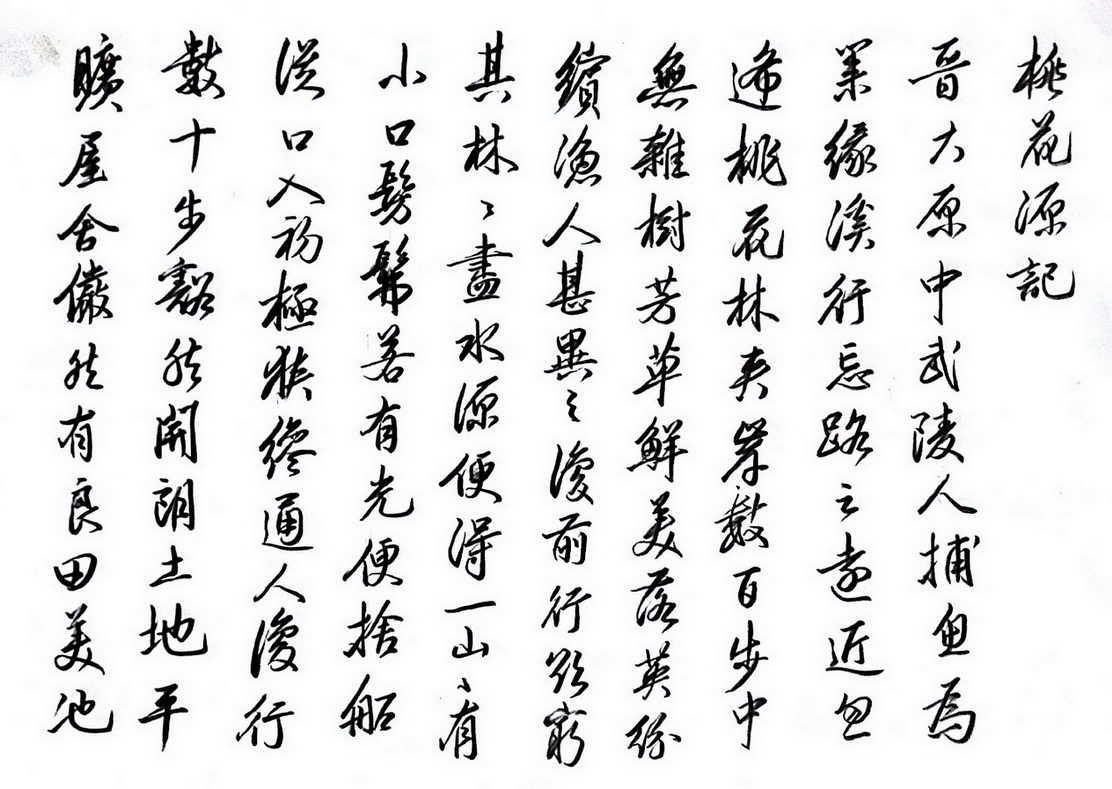 桃花源記
晉大原中武陵人捕魚為
業緣溪行忘路之遠近忽
逢桃花林夾岸數百步中
無雜樹芳草鮮美落英紛
繽漁人甚異之復前行欲窮
其林〻盡水源便得一山〻有
小口髣髴若有光便捨船
從口入初極狹纔通人復行
數十步豁然開朗土地平
曠屋舍儼然有良田美池